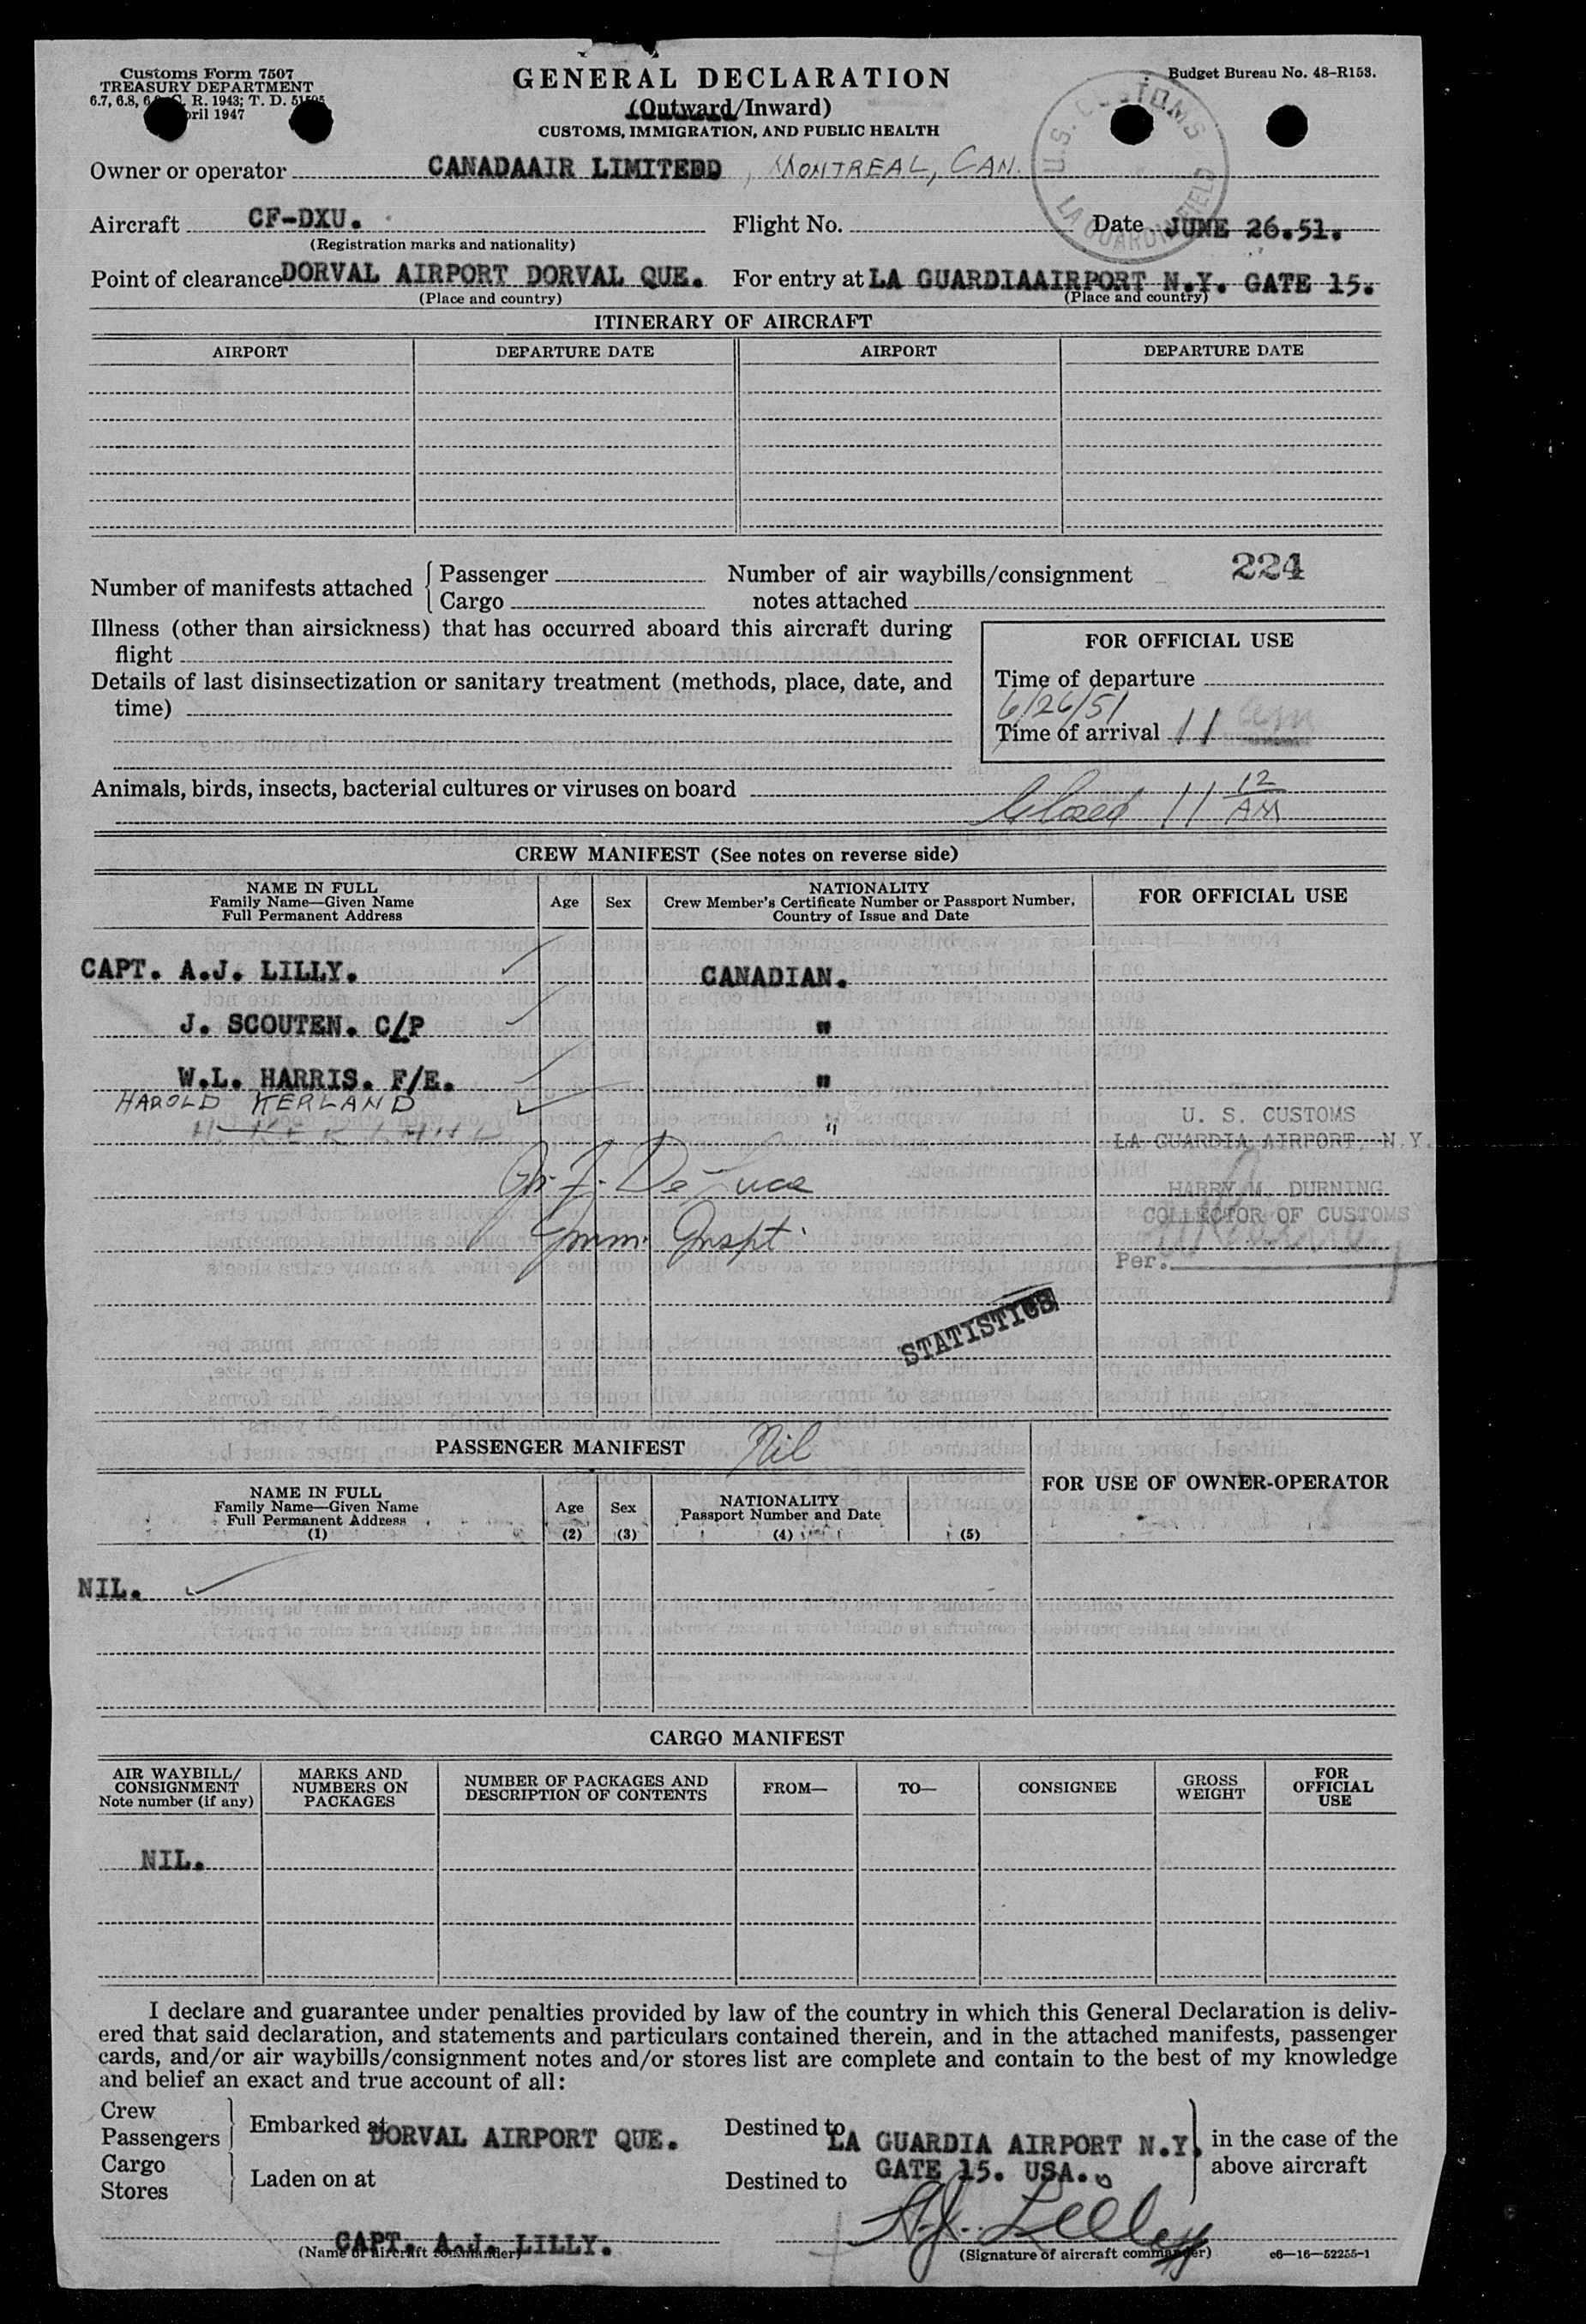 Customs Form 7507
TREASURY DEPARTMENT
6.7, 6.8, C. R. 1943; T. D.
1947
GENERAL DECLARATION
(Outward/Inward)
CUSTOMS, IMMIGRATION, AND PUBLIC HEALTH
Budget Bureau No. 48-R153.
U.S. CUSTOMS
LA GUARDIA FIELD
Owner or operator CANADAAIR LIMITEDD, MONTREAL, CAN.
Aircraft CF-DXU. Flight No. Date JUNE 26.51.
(Registration marks and nationality)
Point of clearance DORVAL AIRPORT DORVAL QUE. For entry at LA GUARDIAAIRPORT N.Y. GATE 15.
(Place and country) (Place and country)
ITINERARY OF AIRCRAFT
AIRPORT DEPARTURE DATE AIRPORT DEPARTURE DATE
224
Number of manifests attached Passenger Number of air waybills/consignment
Cargo notes attached
Illness (other than airsickness) that has occurred aboard this aircraft during
flight
Details of last disinsectization or sanitary treatment (methods, place, date, and
time)
FOR OFFICIAL USE
Time of departure
6/26/51
Time of arrival 11 am
Animals, birds, insects, bacterial cultures or viruses on board
Closed 11 12 AM
CREW MANIFEST (See notes on reverse side)
NAME IN FULL
Family Name—Given Name
Full Permanent Address
Age
Sex
NATIONALITY
Crew Member's Certificate Number or Passport Number,
Country of Issue and Date
FOR OFFICIAL USE
CAPT. A.J. LILLY. CANADIAN.
J. SCOUTEN. C/P "
W.L. HARRIS. F/E. "
HAROLD KERLAND
H. KERLAND "
U. S. CUSTOMS
LA GUARDIA AIRPORT, N.Y.
HARRY M. DURNING
COLLECTOR OF CUSTOMS
Per.
De Luca
Imm. Inspt.
STATISTICS
PASSENGER MANIFEST Nil
FOR USE OF OWNER-OPERATOR
NAME IN FULL
Family Name—Given Name
Full Permanent Address
(1)
Age
(2)
Sex
(3)
NATIONALITY
Passport Number and Date
(4)
(5)
NIL.
CARGO MANIFEST
AIR WAYBILL/
CONSIGNMENT
Note number (if any)
MARKS AND
NUMBERS ON
PACKAGES
NUMBER OF PACKAGES AND
DESCRIPTION OF CONTENTS
FROM—
TO—
CONSIGNEE
GROSS
WEIGHT
FOR
OFFICIAL
USE
NIL.
I declare and guarantee under penalties provided by law of the country in which this General Declaration is deliv-
ered that said declaration, and statements and particulars contained therein, and in the attached manifests, passenger
cards, and/or air waybills/consignment notes and/or stores list are complete and contain to the best of my knowledge
and belief an exact and true account of all:
Crew
Passengers
Embarked at DORVAL AIRPORT QUE. Destined to LA GUARDIA AIRPORT N.Y.
GATE 15. USA.
Cargo
Stores
Laden on at Destined to
in the case of the
above aircraft
CAPT. A.J. LILLY. A.J. Lilly
(Name of aircraft commander) (Signature of aircraft commander) c6—16—52255-1